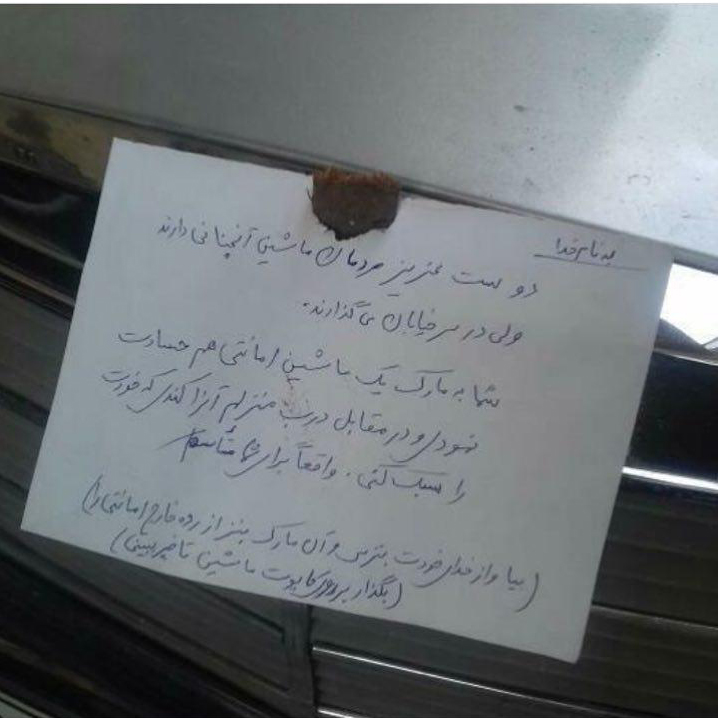 به نام خدا
دوست عزیز مردمان ماشین آنچنانی دارند
ولی در سر خیابان می گذارند.
شما به مارک یک ماشین امانتی هم حسادت
نمودی و در مقابل درب منزلم آنرا کندی که خودت
را سبک کنی. واقعاً برای شما متأسفم
(بیا و از خدای خودت بترس و آن مارک بنز از رده خارج امانتی را)
(بگذار بر روی کاپوت ماشین تا خیر ببینی)